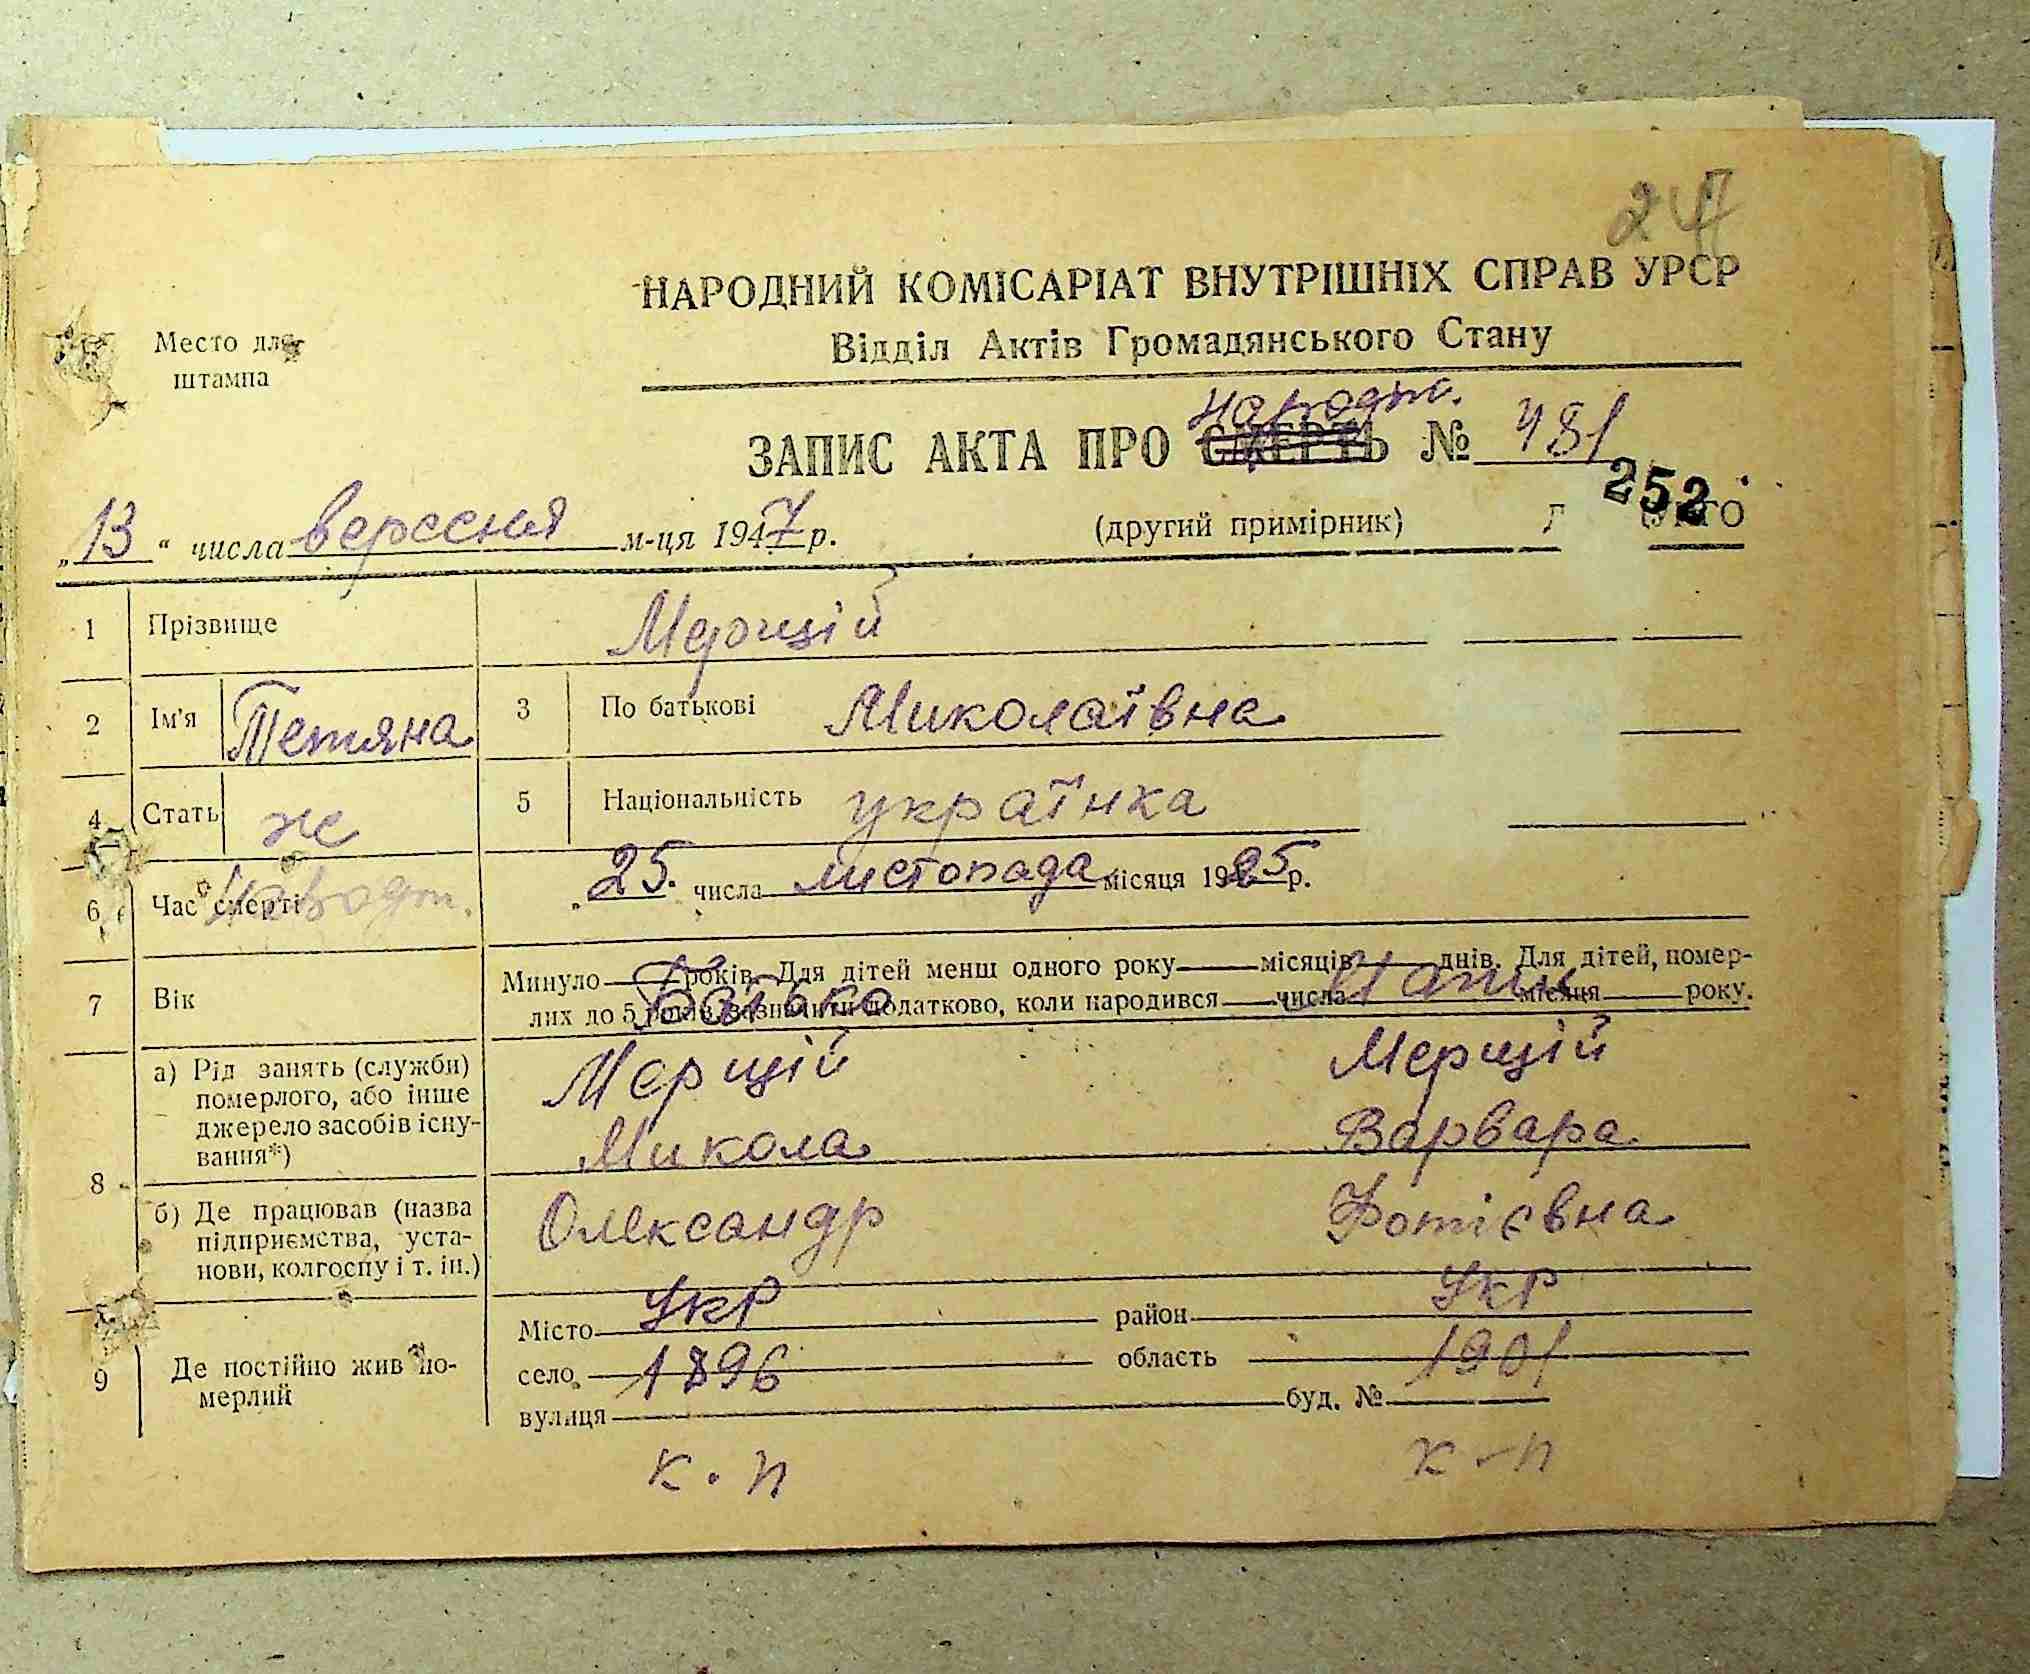 НАРОДНИЙ КОМІСАРІАТ ВНУТРІШНІХ СПРАВ УРСР
Место для
штампа
Відділ Актів Громадянського Стану
народж.
ЗАПИС АКТА ПРО СМЕРТЬ № 481
252
„13“ числа вересня м-ця 1947 р. (другий примірник)
1 Прізвище Мерщій
2 Ім'я Тетяна 3 По батькові Миколаївна
4 Стать ж 5 Національність українка
6 Час смерті „25. числа листопада місяця 1925 р.
7 Вік Минуло років. Для дітей менш одного року місяців днів. Для дітей, помер-
лих до 5 років, зазначити додатково, коли народився числа місяця року.
Батько
8 а) Рід занять (служби)
померлого, або інше
джерело засобів існу-
вання*)
Мерщій Мерщій
Микола Варвара
б) Де працював (назва
підприємства, уста-
нови, колгоспу і т. ін.)
Олександр Фотієвна
9 Де постійно жив по-
мерлий
Місто Укр район Укр
село 1896 область 1901
вулиця буд. №
к.п к-п